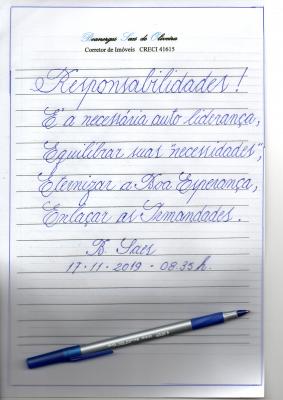 Boanerges Saes de Oliveira
Corretor de Imóveis CRECI 41615
Responsabilidades!
É a necessária auto liderança,
Equilibrar suas "necessidades";
Eternizar a Boa Esperança,
Enlaçar as Irmandades.
B. Saes
17-11-2019 - 08:35 h.